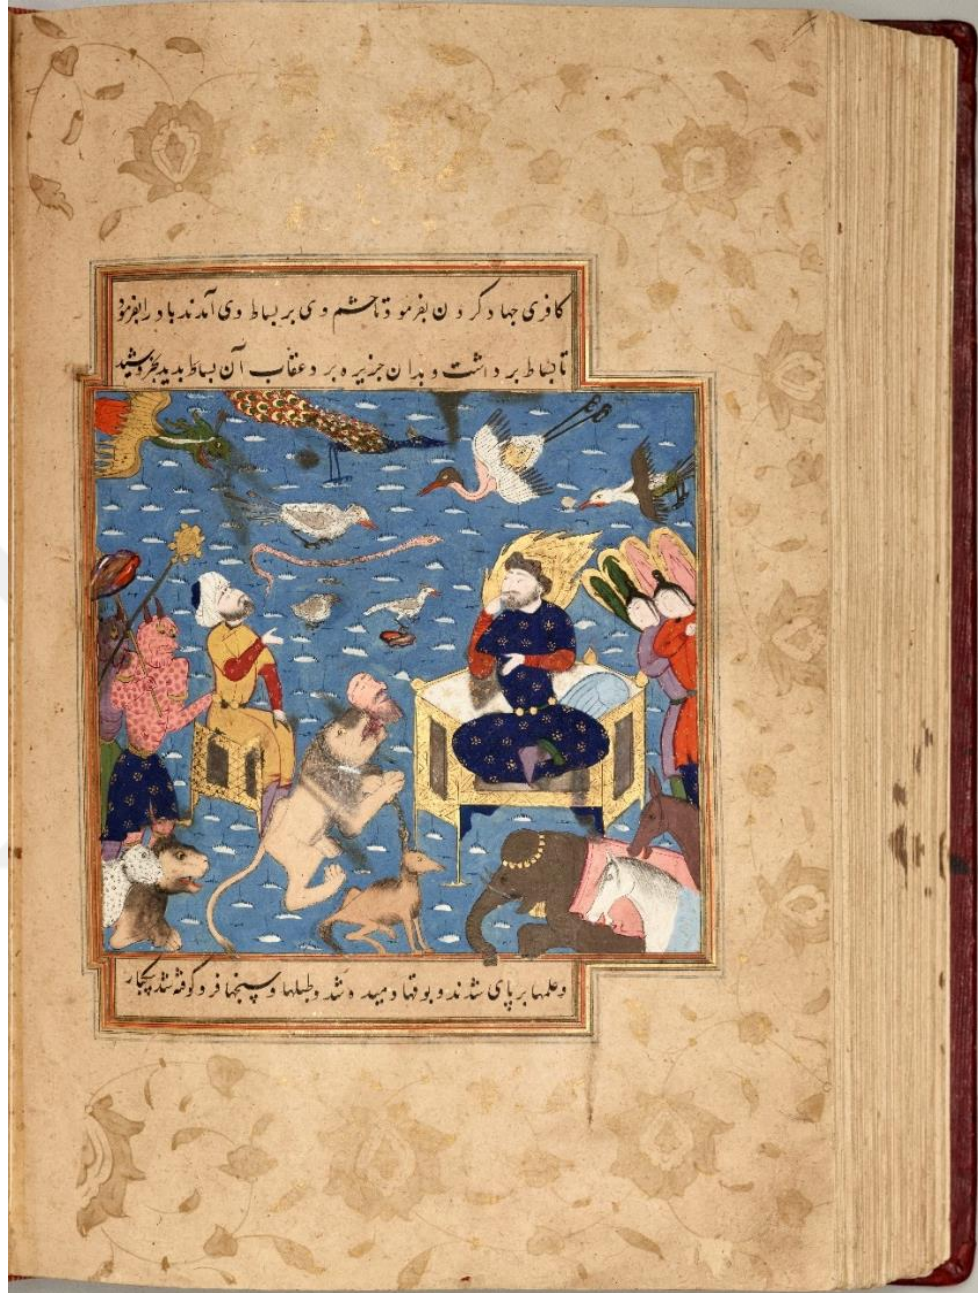 کافری جهاد کردن بفرمود تا حشم وی بر بساط وی آمدند باد را بفرمود
تا بساط برداشت و بدان جزیره برد عقاب آن بساط بدید بخروشید
وعلمها بر پای شدند و بوقها دمیده شد وطبلها و سنجها فرو کوفته شد